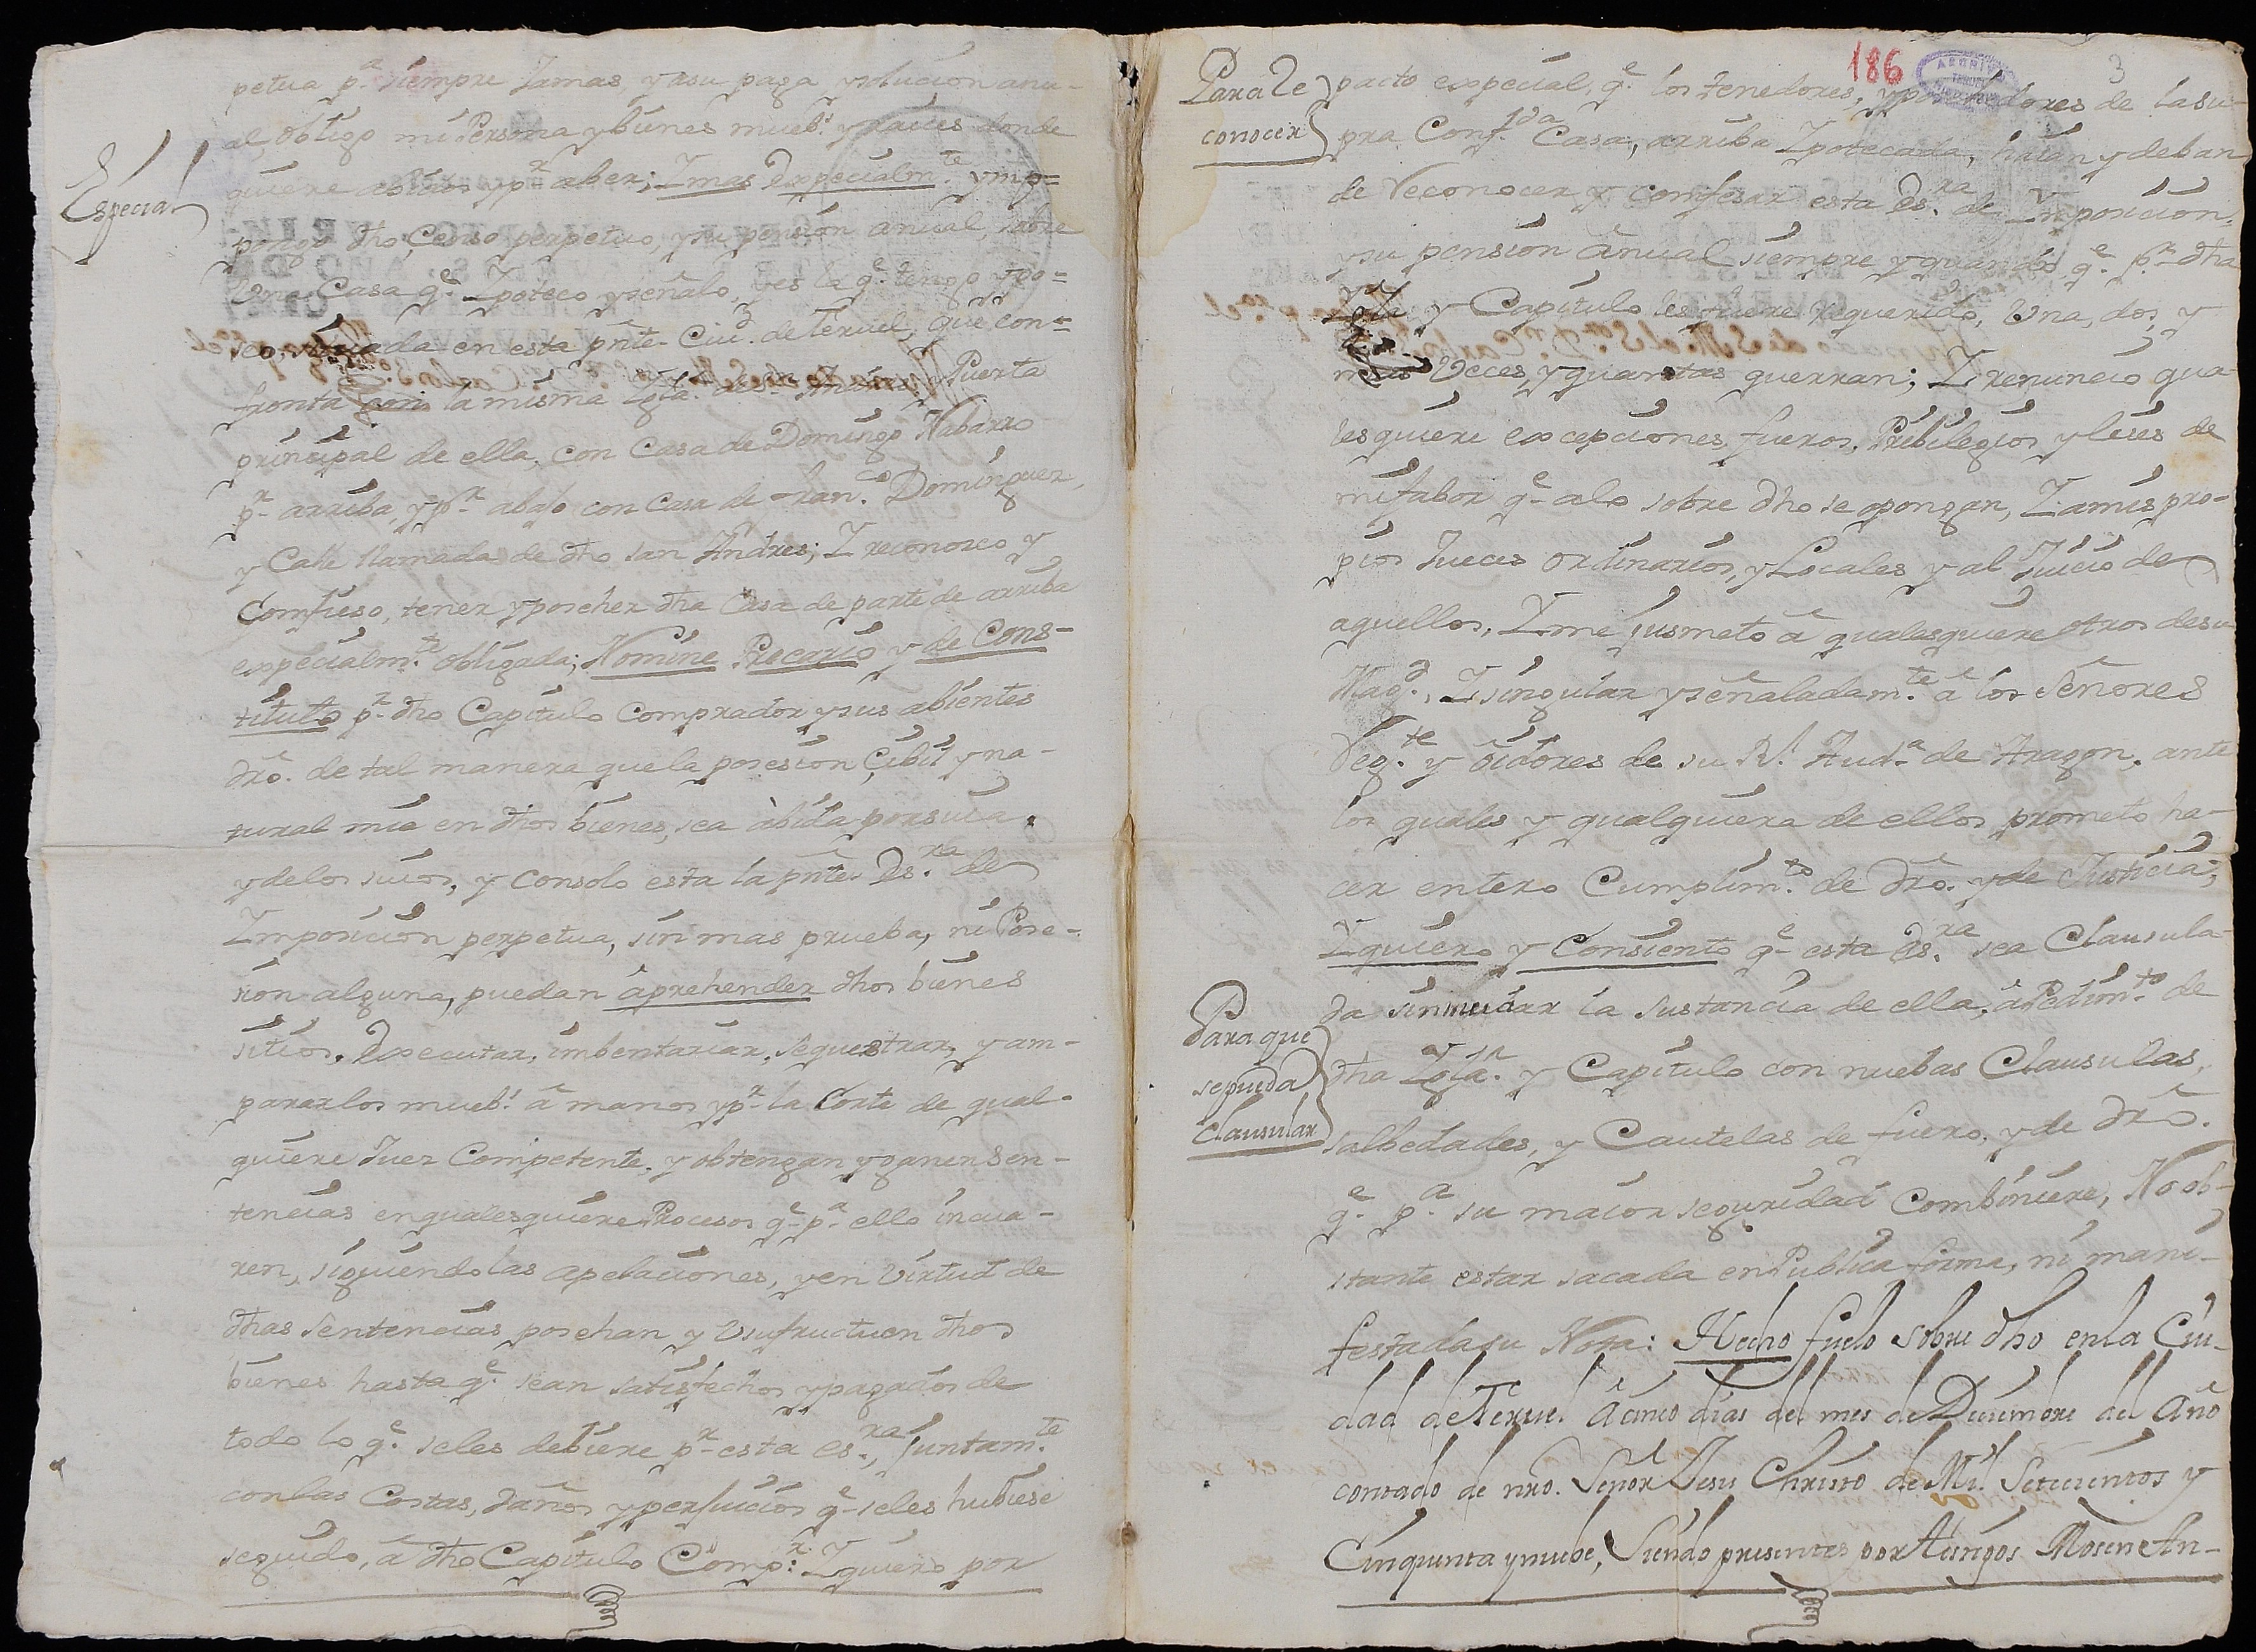 petua p.ª siempre Jamas, y a su paga, y solucion anu-
al, obligo mi Persona y bienes mueb.s y raices donde
Especial
quiere abidos y p.r aber; Y mas Especialm.te ymp=
pongo dho Censo perpetuo, y su pension anual, sobre
Una Casa q.e Ypoteco y señalo, y es la q.e tengo y po=
seo, sitiada en esta pñte Ciu.d de Teruel, que con=
fronta con la misma Ygla. de Sn. Andres Puerta
principal de ella, con Casa de Domingo Nabarro
p.r arriba, y p.r abajo con Casa de Fran.co Dominguez,
y Calle llamada de dho san Andres; Y reconozco y
Comfieso, tener y poseher dha Casa de parte de arriba
expecialm.te obligada; Nomine Precario y de Cons-
tituto p.r dho Capitulo Comprador y sus abientes
dro. de tal manera que la posesion Çibil y na-
tural mia en dhos bienes, sea àbida por suia,
y de los suios, y con solo esta la pñte Es.ra de
Ymposicion perpetua, sin mas prueba, ni Pose-
sion alguna, puedan âprehender dhos bienes
sitios, Executar, imbentariar, sequestrar, y am-
pararlos mueb.s â manos y p.r la Corte de qual-
quiere Juez Competente, y obtengan y ganen Sen-
tencias en qualesquiere Procesos q.e p.a ello incia-
ren, siguiendo las apelaciones, y en Virtud de
dhas Sentencias posehan y Usufructuen dhos
bienes hasta q.e sean satisfechos y pagados de
todo lo q.e se les debiere p.r esta es.ra, Juntam.te
con las Costas, daños y perjuicios q.e se les hubiese
seguido, â dho Capitulo Comp.r: Y quiero por
186
3
ARCHIVO
Para Re
conocer
pacto expecial, q.e los tenedores, y posehedores de la su-
pra Conf.da Casa, arriba Ypotecada, haian y deban
de Reconocer y confesar esta Es.ra de Ymposicion,
y su pension ânual siempre y quando q.e p.r dha
Ygla. y Capitulo les fuere requerido, Una, dos, y
mas Veces, y quantas querran; Y renuncio qua-
lesquiere excepciones, fueros, Pribilegios y leies de
mi fabor q.e a lo sobre dho se opongan, Y a mis pro-
pios Jueces ordinarios, y Locales y al Juicio de
aquellos, Y me jusmeto â qualesquiere otros de su
Mag.d, Y singular y señaladam.te â los Señores
Reg.te y oidores de su R.l Aud.a de Aragon, ante
los quales y qualquiera de ellos prometo ha-
cer entero Cumplim.to de dro. y de Justicia;
Y quiero y Consiento q.e esta Es.ra sea Clausula-
Para que
se pueda
Clausular
da sin mudar la sustancia de ella, â Pedim.to de
dha Ygla. y Capitulo con nuebas Clausulas,
salbedades, y Cautelas de fuero, y de dro.
q.e p.a su maior seguridad Combiniere, No ob-
stante estar sacada en Publica forma, ni mani-
festada su Nota: Hecho fue lo sobre dho en la Ciu-
dad de Teruel â cinco dias del mes de Deciembre del Año
contado de nro. Señor Jesu Christo de Mil Setecientos y
Cinquenta y nuebe, Siendo presentes por testigos Mosen An-